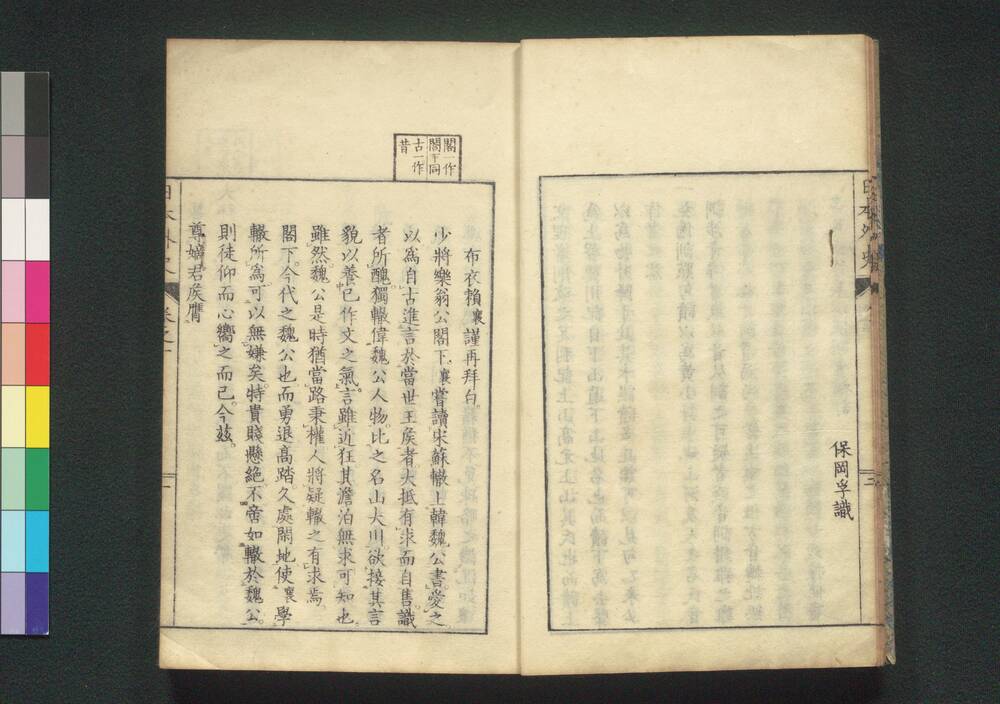 保岡孚識
閣一作
閤下同
古一作
昔
布衣賴襄謹再拜白
少將樂翁公閣下。襄嘗讀宋蘇轍上韓魏公書愛之
以為自古進言於當世王侯者。大抵有求而自售。識
者所醜。獨轍偉魏公人物。比之名山大川欲接其言
貌以養己作文之氣。言雖近狂其澹泊無求可知也
雖然。魏公是時猶當路秉權人將疑轍之有求焉。
閣下。今代之魏公也。而勇退高踏。久處閑地使襄學
轍所為。可以無嫌矣。特貴賤懸絕不啻如轍於魏公。
則徒仰而心嚮之而已。今茲。
尊嬪君侯膺
日本外史